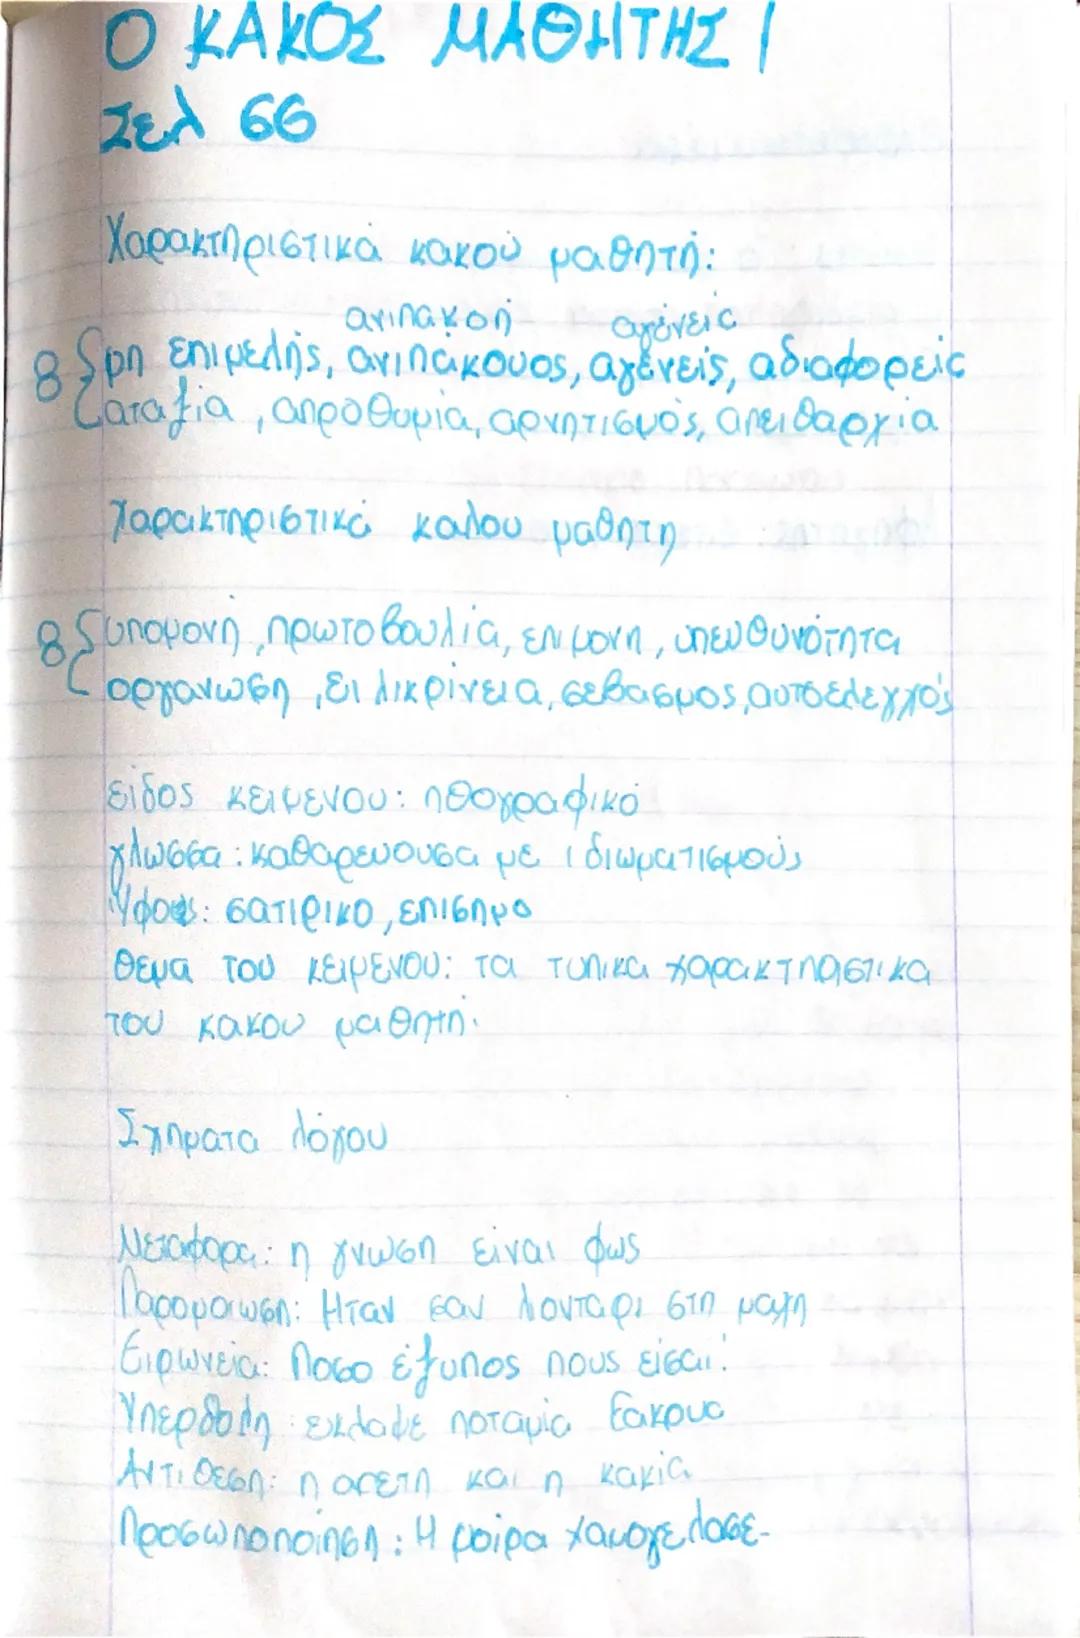 Ο ΚΑΚΟΣ ΜΑΘΗΤΗΣ /
Σελ 66
Χαρακτηριστικά κακού μαθητή:
ανιπακοή αγένεις
8 { μη επιμελής, ανιπάκουος, αγένεις, αδιαφορείς
αταξία, απροθυμία, αρνητισμός, απειθαρχία
Χαρακτηριστικά καλου μαθητη
8 { υπομονή, πρωτοβουλία, επιμονη, υπευθυνότητα
οργανωση, ειλικρίνεια, σεβασμος, αυτοελεγχός
είδος κειμενου: ηθογραφικό
γλωσσα: καθαρευουσα με ιδιωματισμούς
Υφος: σατιρικο, επισημο
Θεμα του κειμενου: τα τυπικα χαρακτηριστικα
του κακου μαθητη.
Σχηματα λόγου
Μεταφορα: η γνωση είναι φως
Παρομοιωση: Ηταν σαν λιονταρι στη μαχη
Ειρωνεία: Ποσο έξυπνος πους είσαι!
Υπερβολη: εκλαψε ποταμια δακρυα
Αντιθεση: η αρετη και η κακια
Προσωποποίηση: Η μοίρα χαμογελασε-